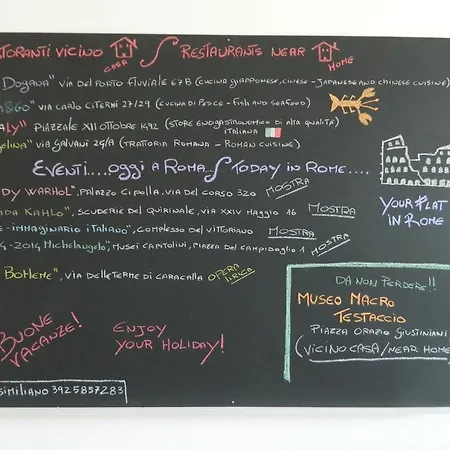 STORANTI VICINO CASA / RESTAURANTS NEAR HOME
DOGANA" VIA DEL PORTO FLUVIALE 67B (CUCINA GIAPPONESE, CINESE - JAPANESE AND CHINESE CUISINE)
&GO" VIA CARLO CITERNI 27/29 (CUCINA DI PESCE - FISH AND SEAFOOD)
ALY" PIAZZALE XII OTTOBRE 1492 (STORE ENOGASTRONOMICO DI ALTA QUALITÀ ITALIANA)
ELINA" VIA GALVANI 29/A (TRATTORIA ROMANA - ROMAN CUISINE)
EVENTI....OGGI A ROMA... / TODAY IN ROME....
DY WARHOL", PALAZZO CIPOLLA, VIA DEL CORSO 320 MOSTRA
IDA KAHLO", SCUDERIE DEL QUIRINALE, VIA XXIV MAGGIO 16 MOSTRA
E-IMMAGINARIO ITALIANO", COMPLESSO DEL VITTORIANO MOSTRA
4-2014 MICHELANGELO", MUSEI CAPITOLINI, PIAZZA DEL CAMPIDOGLIO 1 MOSTRA
BOHEME", VIA DELLE TERME DI CARACALLA OPERA LIRICA
YOUR FLAT
IN ROME
BUONE
VACANZE!
ENJOY
YOUR HOLIDAY!
DA NON PERDERE!!
MUSEO MACRO
TESTACCIO
PIAZZA ORAZIO GIUSTINIANI
(VICINO CASA/NEAR HOME
SIMILIANO 3925857283